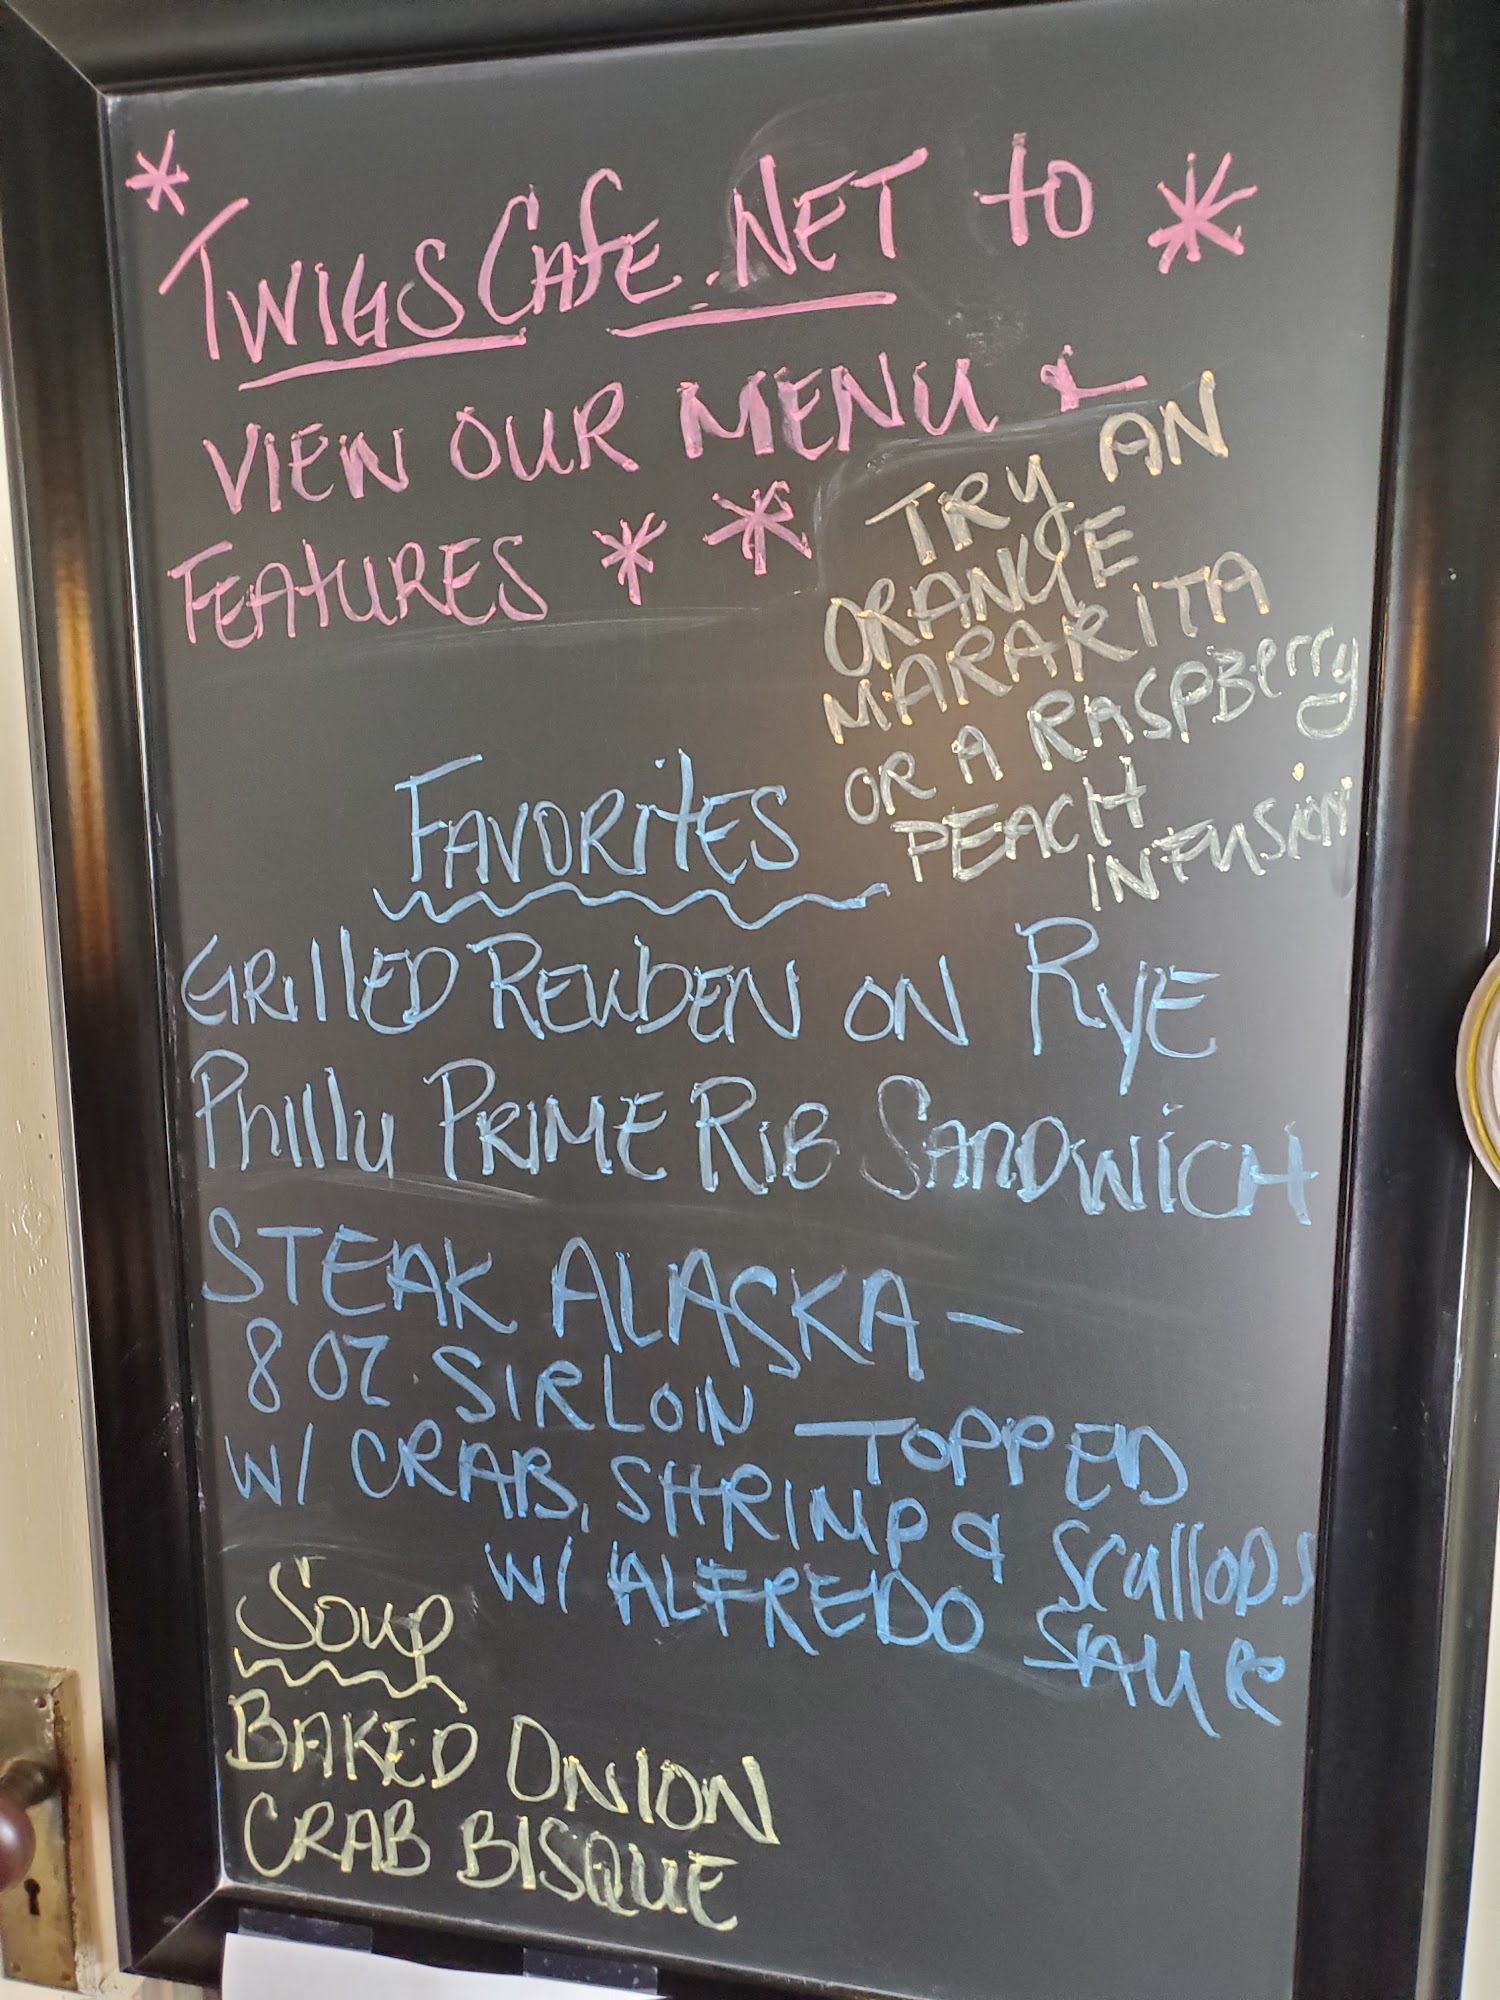 * TWIGSCAFE.NET to *
VIEW OUR MENU &
FEATURES * *
TRY AN
ORANGE
MARARITA
OR A RASPBerry
PEACH
INFUSION
FAVORITES
GRIllED REUBEN ON RYE
Philly PRIME RIB SANDWICH
STEAK ALASKA -
8 OZ SIRLOIN TOPPED
W/ CRAB, SHRIMP & SCAllOPS
W/ ALFREDO SAUCE
Soup
BAKED ONION
CRAB BISQUE